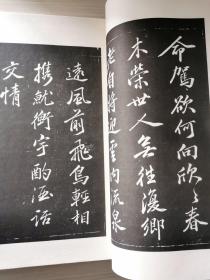 命駕欲何向欣々春
木榮世人無往復鄉
老自將迎雲內流泉
遠風前飛鳥輕相
携就衡宇酌酒話
交情